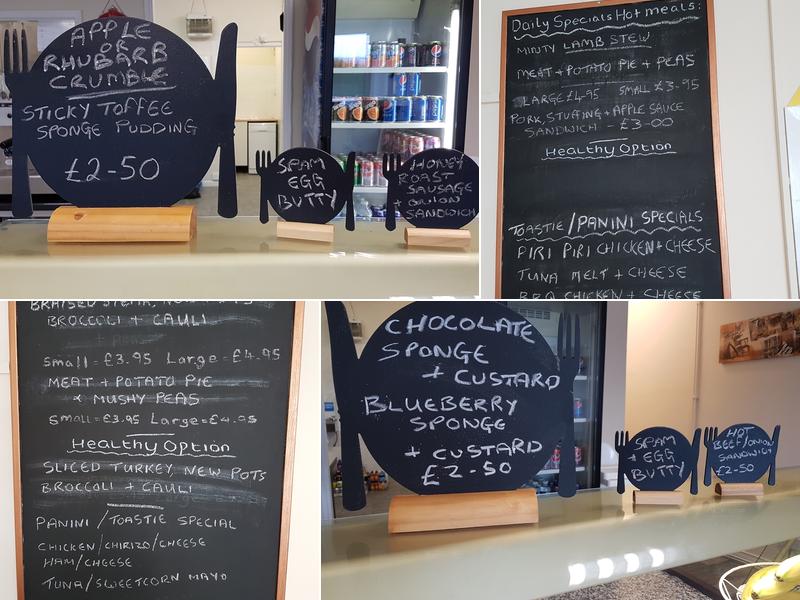 APPLE
OR
RHUBARB
CRUMBLE
STICKY TOFFEE
SPONGE PUDDING
£2-50
SPAM
EGG
BUTTY
HONEY
ROAST
SAUSAGE
+ ONION
SANDWICH
Daily Specials Hot meals:
MINTY LAMB STEW
MEAT + POTATO PIE + PEAS
LARGE £4-95 SMALL £3-95
PORK, STUFFING + APPLE SAUCE
SANDWICH - £3-00
Healthy Option
TOASTIE/PANINI SPECIALS
PIRI PIRI CHICKEN + CHEESE
TUNA MELT + CHEESE
BBQ CHICKEN + CHEESE
BRAISED STEAK,
BROCCOLI + CAULI
Small = £3.95 Large = £4.95
MEAT + POTATO PIE
& MUSHY PEAS
Small = £3.95 Large = £4.95
Healthy Option
SLICED TURKEY, NEW POTS
BROCCOLI + CAULI
PANINI / TOASTIE SPECIAL
CHICKEN/CHIRIZO/CHEESE
HAM/CHEESE
TUNA/SWEETCORN MAYO
CHOCOLATE
SPONGE
+ CUSTARD
BLUEBERRY
SPONGE
+ CUSTARD
£2-50
SPAM
+ EGG
BUTTY
HOT
BEEF/ONION
SANDWICH
£2-50